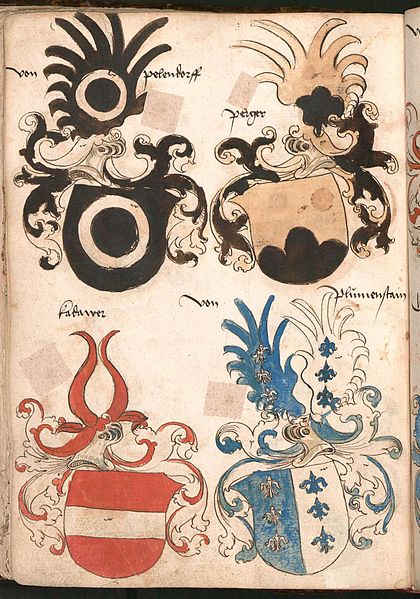 von pelendorff
perger
kadawer
von plümenstain